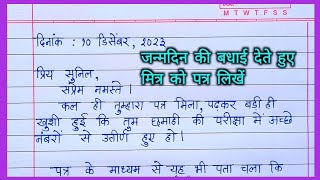 M T W T F S S
दिनांक : १० डिसेंबर, २०२३
जन्मदिन की बधाई देते हुए
मित्र को पत्र लिखें
प्रिय सुनिल,
सप्रेम नमस्ते ।
कल ही तुम्हारा पत्र मिला, पढ़कर बड़ी ही
खुशी हुई कि तुम छमाही की परीक्षा में अच्छे
नंबरों से उत्तीर्ण हुए हो ।
पत्र के माध्यम से यह भी पता चला कि